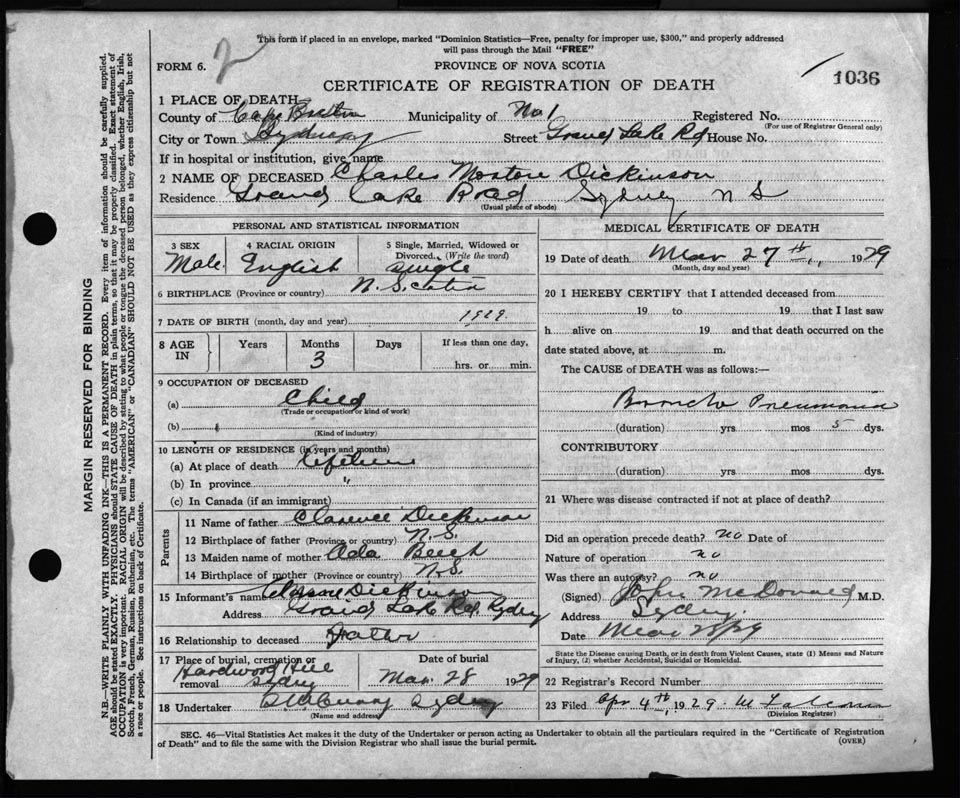 This form if placed in an envelope, marked "Dominion Statistics—Free, penalty for improper use, $300," and properly addressed
will pass through the Mail "FREE"
FORM 6. 2
PROVINCE OF NOVA SCOTIA
CERTIFICATE OF REGISTRATION OF DEATH
1036
1 PLACE OF DEATH
County of Cape Breton Municipality of No. 1 Registered No.
(For use of Registrar General only)
City or Town Sydney Street Grand Lake Rd House No.
If in hospital or institution, give name
2 NAME OF DECEASED Charles Morton Dickinson
Residence Grand Lake Road Sydney N S
(Usual place of abode)
PERSONAL AND STATISTICAL INFORMATION
3 SEX
Male
4 RACIAL ORIGIN
English
5 Single, Married, Widowed or
Divorced. (Write the word)
single
6 BIRTHPLACE (Province or country) N. Scotia
7 DATE OF BIRTH (month, day and year) 1929.
8 AGE
IN
Years
Months
3
Days
If less than one day,
hrs. or min.
9 OCCUPATION OF DECEASED
(a) Child
(Trade or occupation or kind of work)
(b)
(Kind of industry)
10 LENGTH OF RESIDENCE (in years and months)
(a) At place of death Lifetime
(b) In province "
(c) In Canada (if an immigrant)
Parents
11 Name of father Clarence Dickinson
12 Birthplace of father (Province or country) N. S.
13 Maiden name of mother Ada Beech
14 Birthplace of mother (Province or country) N. S.
15 Informant's name Clarence Dickinson
Address Grand Lake Rd. Sydney
16 Relationship to deceased Father
17 Place of burial, cremation or
removal
Hardwood Hill
Sydney
Date of burial
Mar. 28 1929
18 Undertaker Sydney
(Name and address)
MEDICAL CERTIFICATE OF DEATH
19 Date of death Mar 27th, 1929
(Month, day and year)
20 I HEREBY CERTIFY that I attended deceased from
19 to 19 that I last saw
h alive on 19 and that death occurred on the
date stated above, at m.
The CAUSE of DEATH was as follows:
Broncho Pneumonia
(duration) yrs. mos 5 dys.
CONTRIBUTORY
(duration) yrs. mos. dys.
21 Where was disease contracted if not at place of death?
Did an operation precede death? no Date of
Nature of operation no
Was there an autopsy? no
(Signed) John McDonald M.D.
Address Sydney.
Date Mar 28/29
State the Disease causing Death, or in death from Violent Causes, state (1) Means and Nature
of Injury, (2) whether Accidental, Suicidal or Homicidal.
22 Registrar's Record Number
23 Filed Apr 4th, 1929.
(Division Registrar)
SEC. 46—Vital Statistics Act makes it the duty of the Undertaker or person acting as Undertaker to obtain all the particulars required in the "Certificate of Registration
of Death" and to file the same with the Division Registrar who shall issue the burial permit.
(OVER)
MARGIN RESERVED FOR BINDING
N.B.—WRITE PLAINLY WITH UNFADING INK—THIS IS A PERMANENT RECORD. Every item of information should be carefully supplied.
AGE should be stated EXACTLY. PHYSICIANS should STATE CAUSE OF DEATH in plain terms, so that it may be properly classified. Exact statement of
OCCUPATION is very important. RACIAL ORIGIN will be described by stating to what people or tongue the deceased person belonged, whether English, Irish,
Scotch, French, German, Russian, Ruthenian, etc. The terms "AMERICAN" or "CANADIAN" SHOULD NOT BE USED as they express citizenship but not
a race or people. See instructions on back of Certificate.